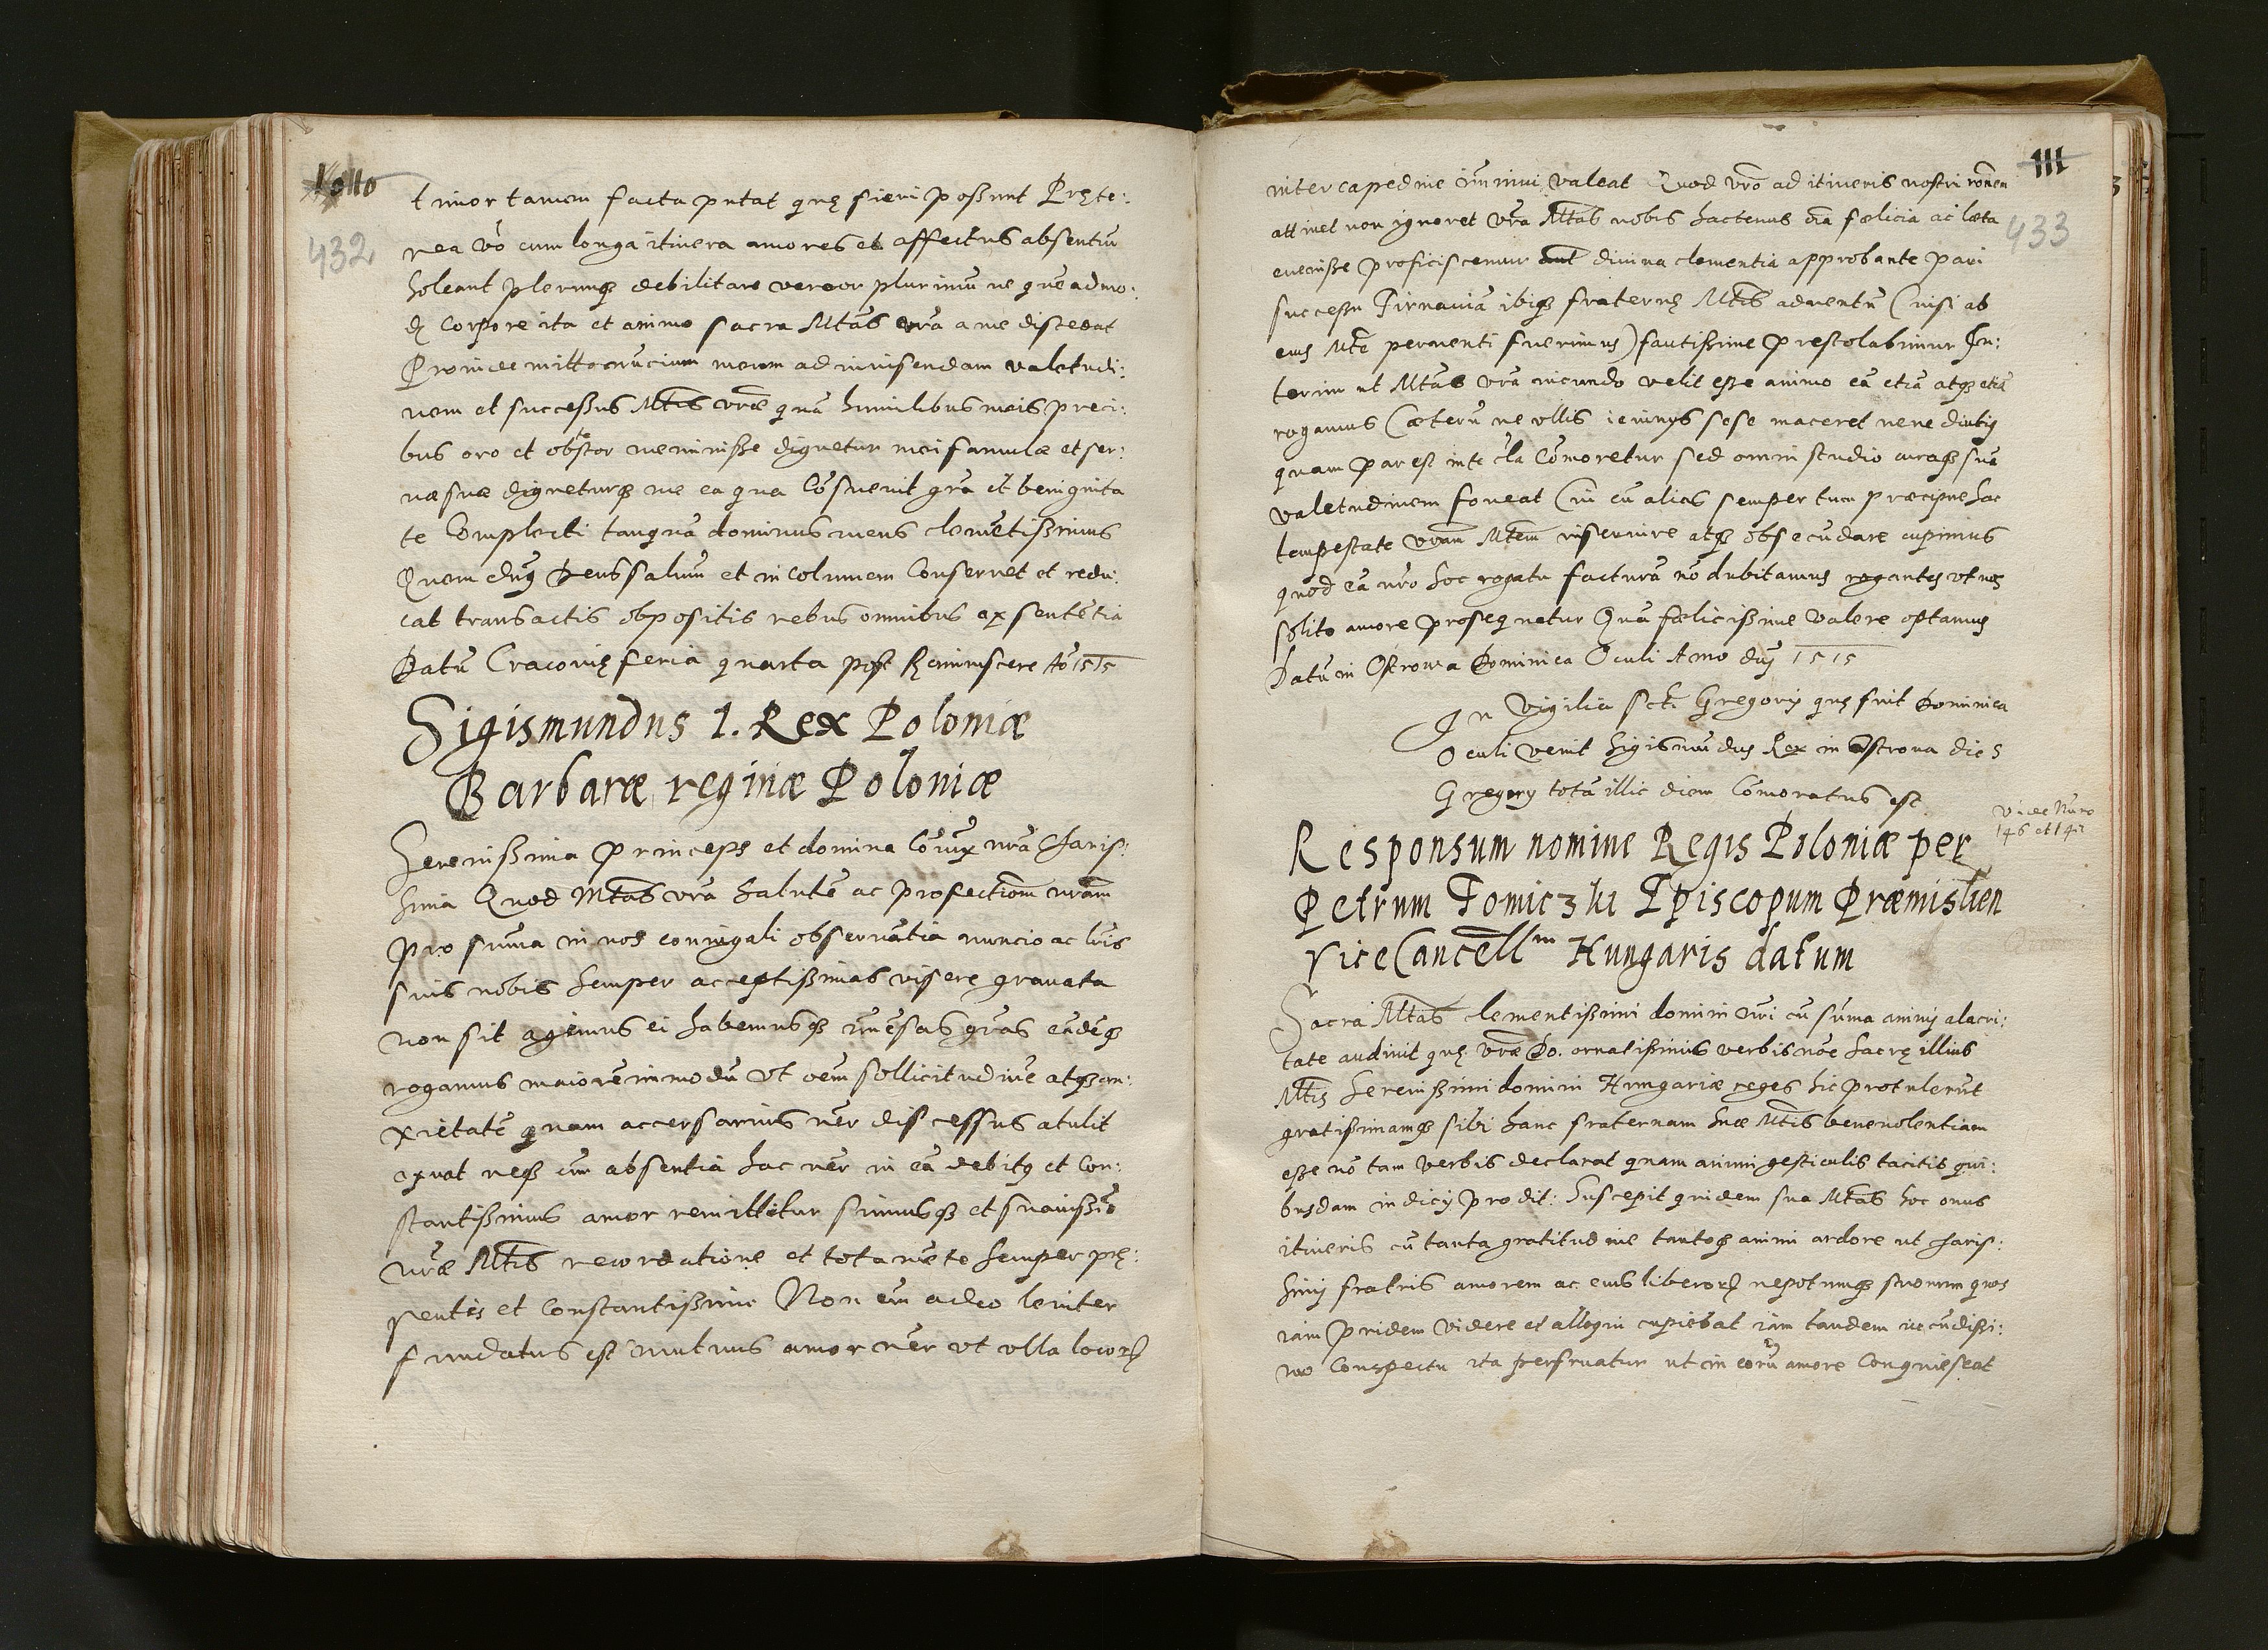 110
432
timor tamen facta putat quę fieri possunt Pręte:
rea vō cum longa itinera amores et affectus absentiū
soleant plerunq; debilitare vereor plurimū ne quēadmo:
dū corpore ita et animo sacra Mtas vrā a me discedat
Proinde mitto nuncium meum ad inuisendam valetudi:
nem et successus Mtis vrae quā humilibus meis preci:
bus oro et obstor meminisse dignetur mei famulæ et ser:
uæ suæ digneturq; me ea qua cōsueuit grā et benignita
te complecti tanquā dominus meus clemētissimus
Quem diu Deus saluum et incolumem conseruet et redu:
cat transactis ob positis rebus omnibus ex sentētia
Datū Cracouię feria quarta post Reminiscere Aō 1515
Sigismundus 1. Rex Poloniæ
Barbaræ reginæ Poloniæ
Serenissima Princeps et domina Cōiux nrā Charis:
sima Quod Mtas vrā salutē ac profectionem nram
pro sūma in nos coniugali obseruātia nuncio ac lrīs
suis nobis semper acceptissimas visere grauata
non sit agimus ei habemusq; īmēsas grās eādēq;
rogamus maiorem in modū vt oēm sollicitudinē atq; an:
xietatē quam accersarius nēr discessus atulit
exuat neq; eīm absentia hac nēr in eā debitus et con:
stantissimus amor remittitur simusq; et suauissīo
vrāe Mtis recordatione et tota mēte semper prę:
sentis et constantissime Non eīm adeo leuiter
fundatus est mutuus amor nēr vt vlla locorū
111
433
intercapedine īminui valeat Quod vrō ad itineris nostri ronem
attinet non ignoret vrā Mtas nobis hactenus oīa fœlicia ac læta
euenisse proficiscemur aut diuina clementia approbante pari
successu Tirnauiā ibiq; fraternę Mtis aduentū (nisi ab
eius Mte peruenti fuerimus) fautissime prestolabimur In:
terim ut Mtas vrā iucundo velit esse animo eā etiā atq; etiā
rogamus Cæterū ne vllis ieiunijs sese maceret neue diutius
quam par est inte cla cōmoretur sed omni studio curaq; suā
valetudinem foueat (in cū alias semper tum præcipue hac
tempestate vram Mtem inseruire atq; obsecūdare cupimus
quod eā nrō hoc rogatu facturā nō dubitamus rogantes vt nos
solito amore prosequatur Quā fœlicissime valere optamus
Datū in Ostrowa Dominica Oculi Anno dnj 1515
In Vigilia Scti Gregorij quę fuit Dominica
Oculi venit Sigismūdus Rex in Ostroua die S
Gregorij totā illic diem cōmoratus est
Vide Nūro
146 et 147
Responsum nomine Regis Poloniæ per
Petrum Tomiczki Episcopum Præmislien
ViceCancellm Hungaris datum
Sacra Mtas clementissimi domini nri cū sūma animi alacri:
tate audiuit quę vrāe Do. ornatissimis verbis nōe sacrę illius
Mtis Serenissimi domini Hungariæ reges hic protulerūt
gratissimamq; sibi hanc fraternam suæ Mtis beneuolentiam
esse nō tam verbis declarat quam animi gesticulis tacitis qui:
busdam indicijs prodit: Suscepit quidem sua Mtas hoc onus
itineris cū tanta gratitudine tantoq; animi ardore ut charis:
simj fratris amorem ac eius liberorū nepotumq; suorum quos
iam pridem videre et alloqui cupiebat iam tandem iucūdissi:
mo conspectu ita perfruatur ut in eorū amore conquiescat